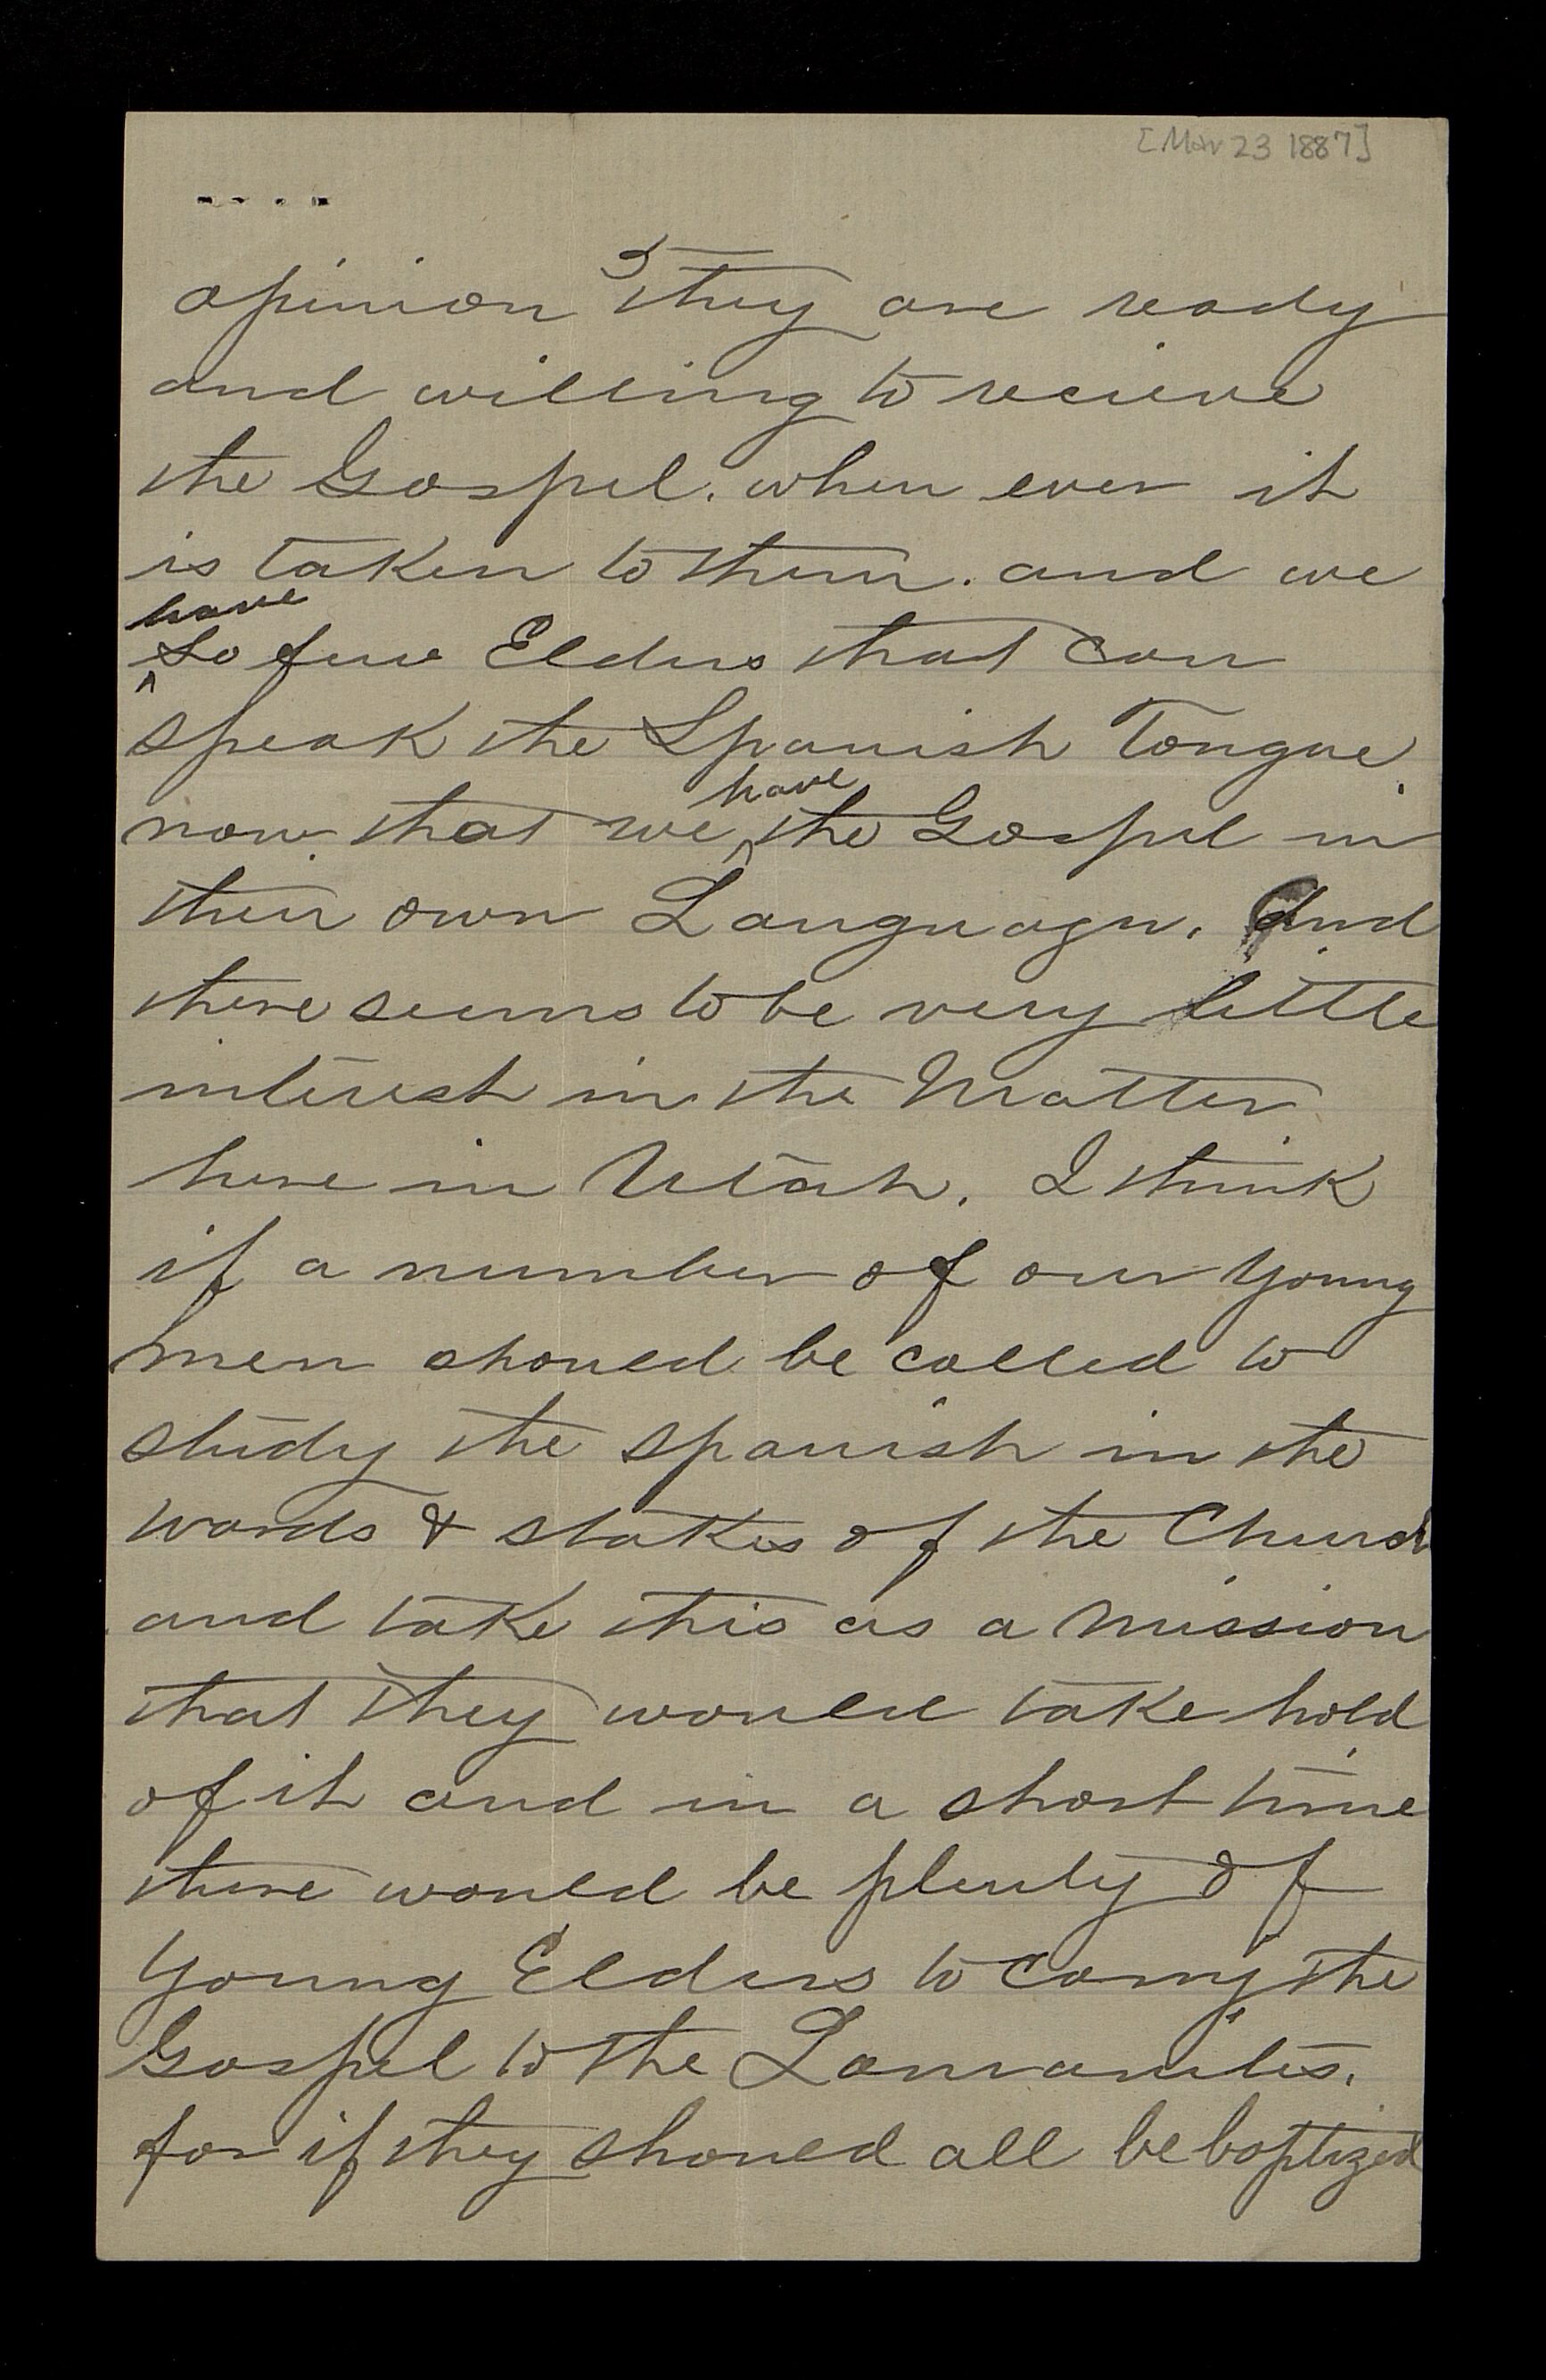 [Mar 23 1887]
5
opinion they are ready
and willing to recieve
the Gospel. when ever it
is taken to them. and we
have
so few Elders that can
speak the Spanish Tongue
have
now that we ^ the Gospel in
their own Language. And
there seems to be very little
interest in the Matter
here in Utah. I think
if a number of our young
men should be called to
study the spanish in the
wards & stakes of the Church
and take this as a mission
that they would take hold
of it and in a short time
there would be plenty of
young Elders to carry the
Gospel to the Lamanites.
for if they should all be baptized